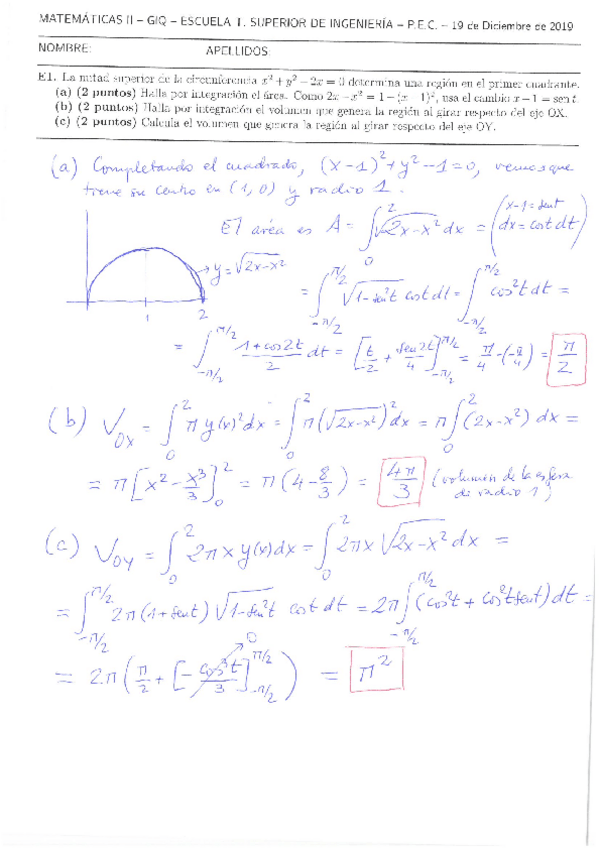 MATEMÁTICAS II – GIQ – ESCUELA T. SUPERIOR DE INGENIERÍA – P.E.C. – 19 de Diciembre de 2019
NOMBRE: APELLIDOS:
E1. La mitad superior de la circunferencia x² + y² − 2x = 0 determina una región en el primer cuadrante.
(a) (2 puntos) Halla por integración el área. Como 2x − x² = 1 − (x − 1)², usa el cambio x − 1 = sen t.
(b) (2 puntos) Halla por integración el volumen que genera la región al girar respecto del eje OX.
(c) (2 puntos) Calcula el volumen que genera la región al girar respecto del eje OY.
(a) Completando el cuadrado, (x-1)² + y² - 1 = 0, vemos que
tiene su centro en (1, 0) y radio 1.
El área es A = ∫₀² √(2x-x²) dx = (x-1 = sent
dx = cost dt)
y = √(2x-x²)
1 2
= ∫_{-π/2}^{π/2} √(1-sen²t) cost dt = ∫_{-π/2}^{π/2} cos²t dt =
= ∫_{-π/2}^{π/2} (1+cos2t)/2 dt = [t/2 + sen2t/4]_{-π/2}^{π/2} = π/4 - (-π/4) = π/2
(b) V_OX = ∫₀² π y(x)² dx = ∫₀² π (√(2x-x²))² dx = π ∫₀² (2x-x²) dx =
= π [x² - x³/3]₀² = π (4 - 8/3) = 4π/3 (volumen de la esfera
de radio 1)
(c) V_OY = ∫₀² 2π x y(x) dx = ∫₀² 2π x √(2x-x²) dx =
= ∫_{-π/2}^{π/2} 2π (1+sent) √(1-sen²t) cost dt = 2π ∫_{-π/2}^{π/2} (cos²t + cos²t sent) dt =
= 2π (π/2 + [-cos³t/3]_{-π/2}^{π/2} → 0) = π²